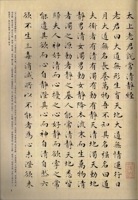 太上老君說常清靜經
老君曰大道無形生育天地大道無情運行日
月大道無名長養萬物吾不知其名強名曰道
夫道者有清有濁有動有靜天清地濁天動地
靜男清女濁男動女靜降本流末而生萬物清
者濁之源動者靜之基人能常清靜天地悉皆
歸夫人神好清而心擾之人心好靜而欲牽之
常能遣其欲而心自靜澄其心而神自清自然六
欲不生三毒消滅所以不能者為心未澄欲未